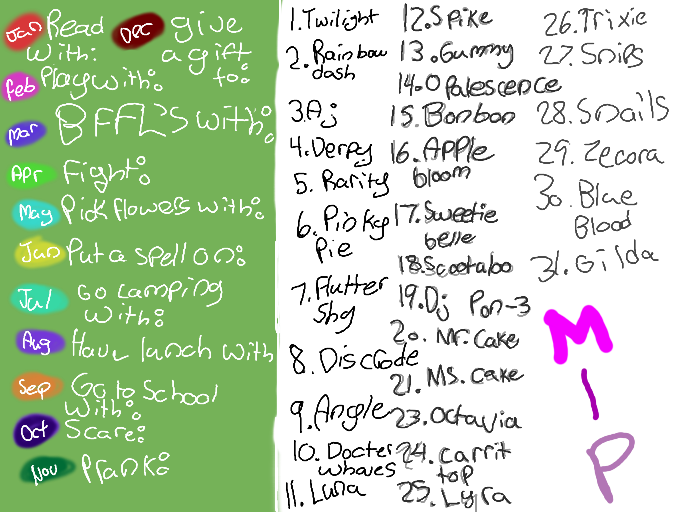 Jan Read
With:
Dec give
a gift
to:
Feb Play with:
Mar BFFL's with:
Apr Fight:
May Pick flowers with:
Jun Put a spell on:
Jul Go camping
with:
Aug Have lunch with
Sep Go to School
with:
Oct Scare:
Nov Prank:
1. Twilight
2. Rainbow
dash
3. Aj
4. Derpy
5. Rarity
6. Pinky
Pie
7. Flutter
Shy
8. Discode
9. Angle
10. Docter
whoves
11. Luna
12. Spike
13. Gummy
14. Opalescence
15. Bonbon
16. APPle
bloom
17. Sweetie
belle
18. Scootaloo
19. Dj Pon-3
20. Mr. Cake
21. Ms. Cake
23. Octavia
24. Carrit
top
25. Lyra
26. Trixie
27. Snips
28. Snails
29. Zecora
30. Blue
Blood
31. Gilda
M
l
P